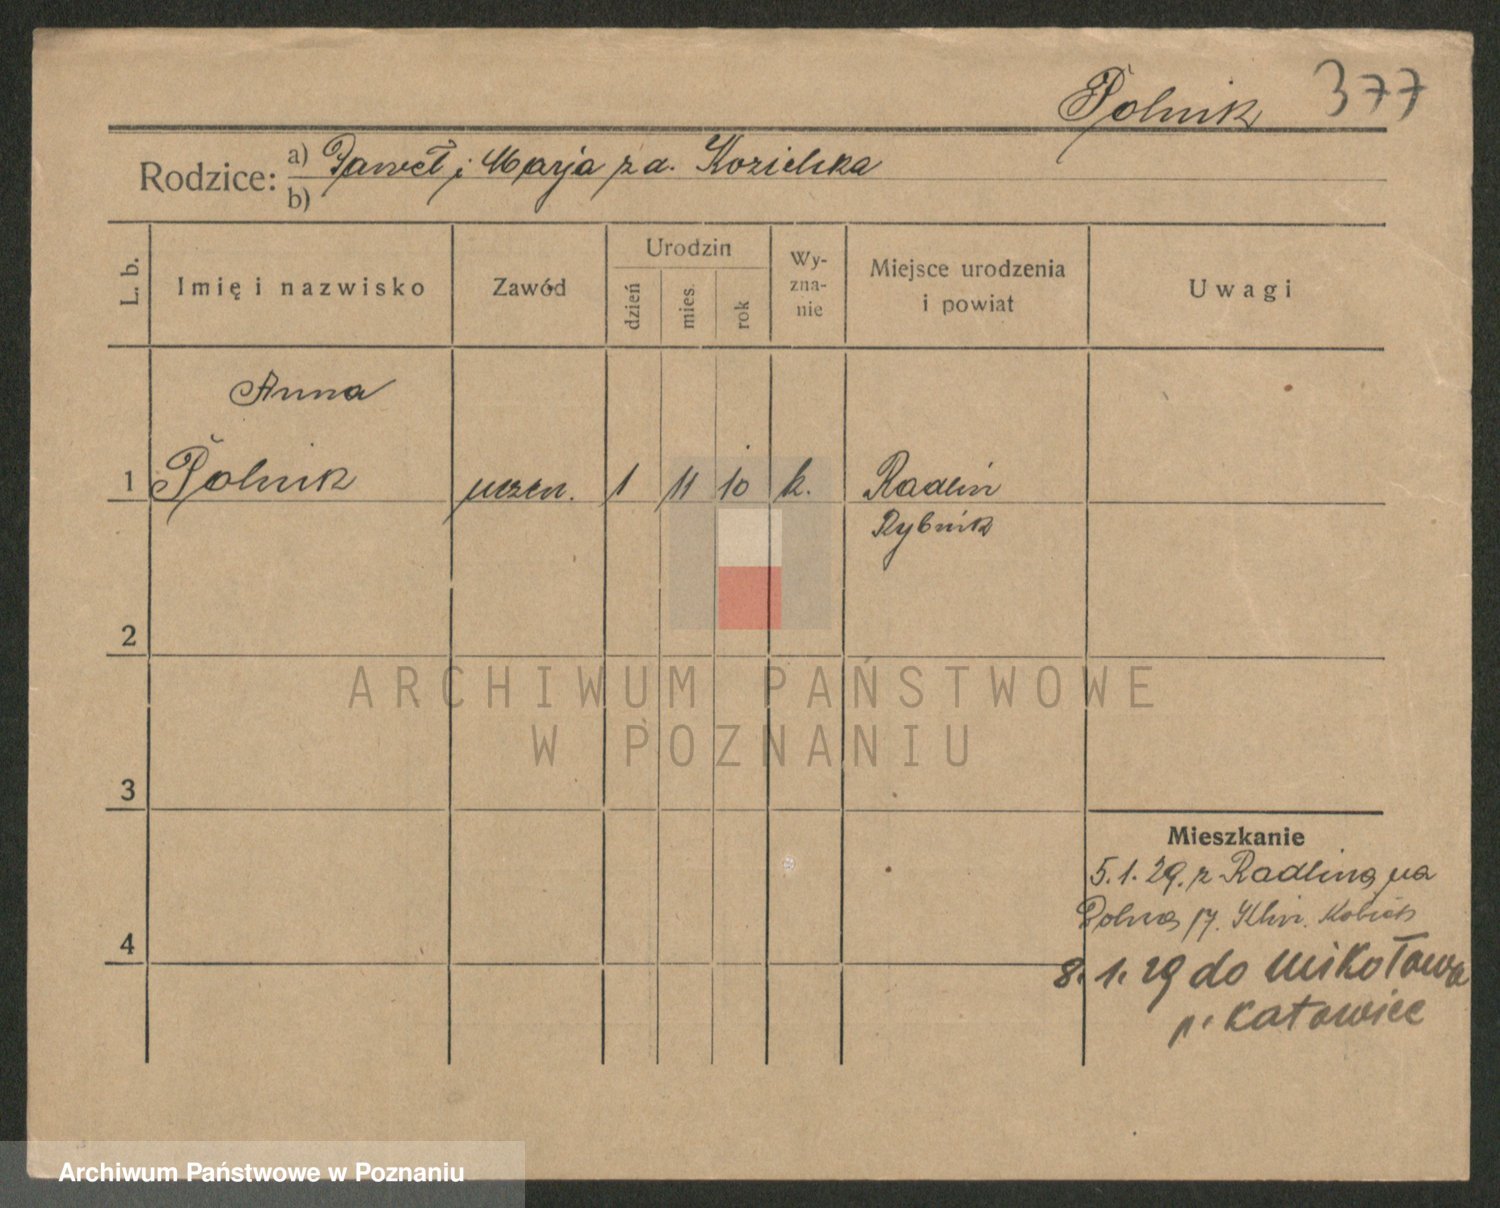 Polnik 377
Rodzice: a) Paweł i Marja z d. Kozielska
b)
L. b.
Imię i nazwisko
Zawód
Urodzin
dzień
mies.
rok
Wy-
zna-
nie
Miejsce urodzenia
i powiat
Uwagi
Anna
1 Polnik uczen. 1 11 10 k. Radlin
Rybnik
2
ARCHIWUM PAŃSTWOWE
W POZNANIU
3
Mieszkanie
5.1.29. z Radlina na
Polna 17. Klin. Kobiet
4
8.1.29 do Mikołowa
p. Katowice
Archiwum Państwowe w Poznaniu